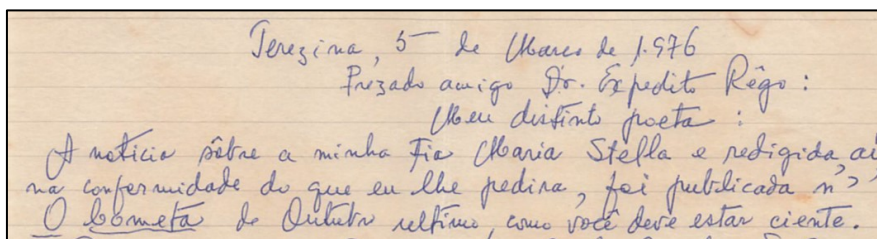 Terezina, 5 de Março de 1.976
Prezado amigo Dr. Expedito Rêgo:
Meu distinto poeta:
A notícia sôbre a minha Tia Maria Stella e redigida, aí
na conformidade do que eu lhe pedira, foi publicada n'
O Cometa de Outubro ultimo, como você deve estar ciente.